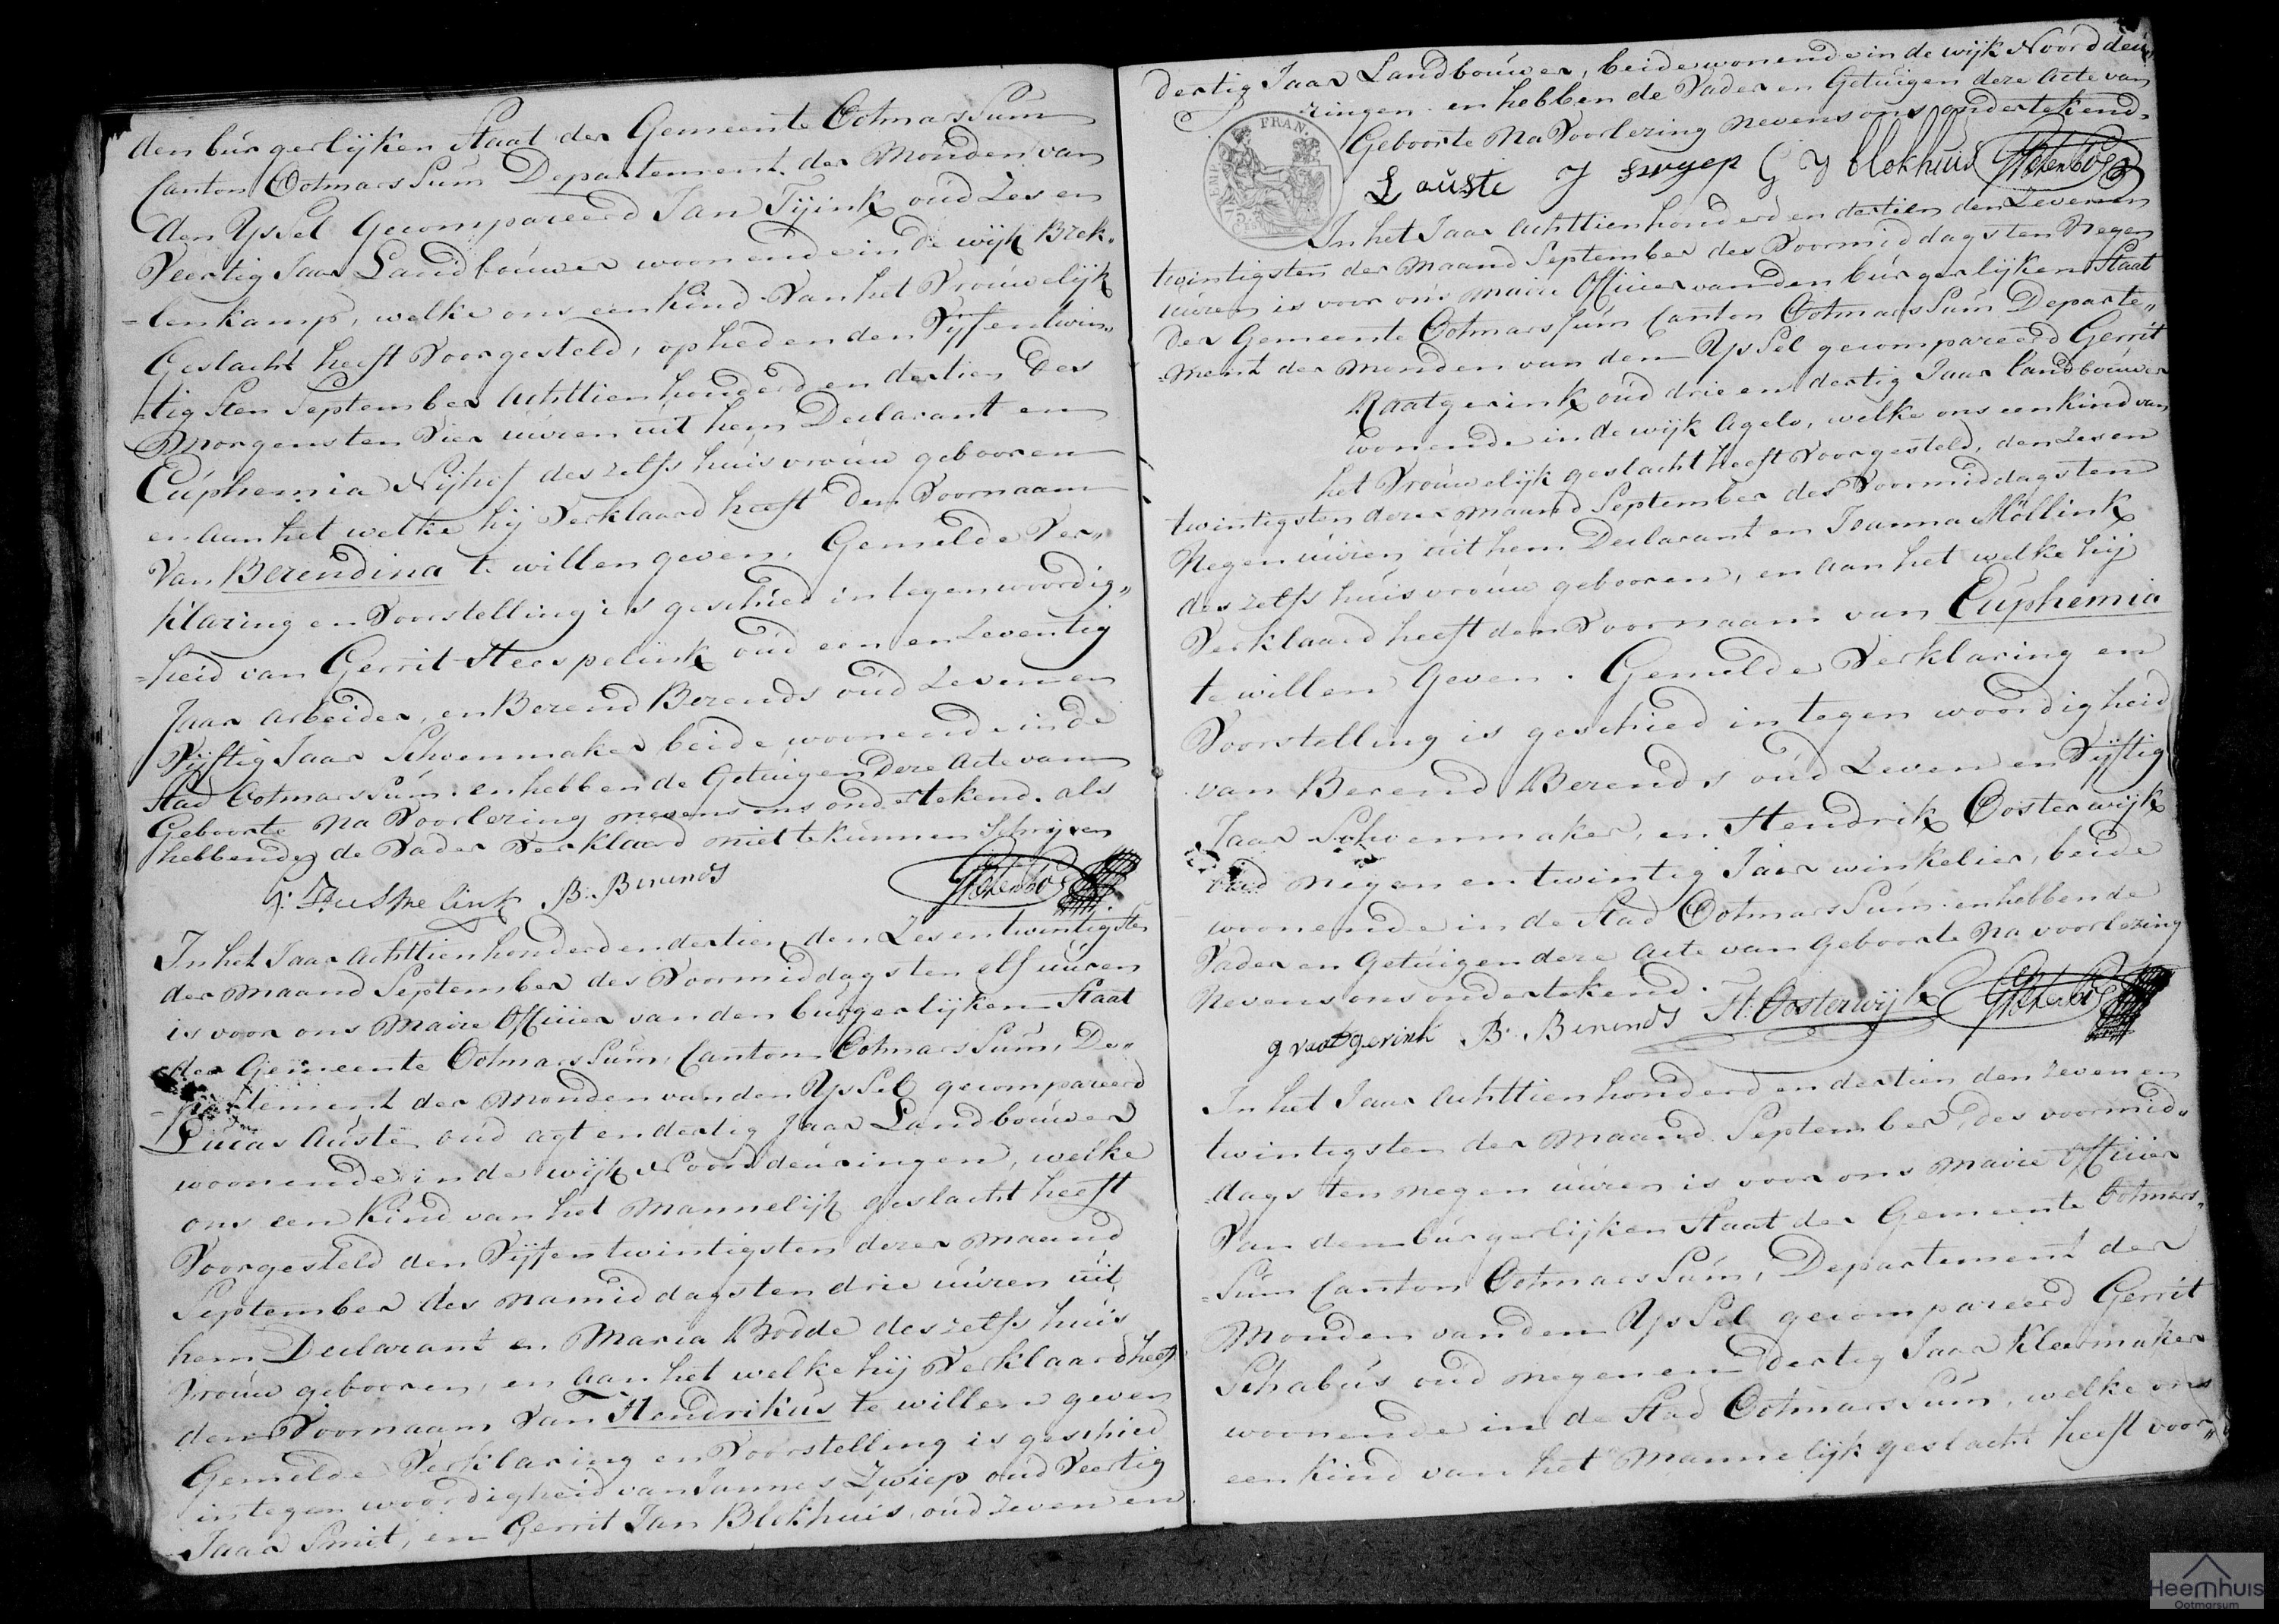 den burgerlijken Staat der Gemeente Ootmarssum
Canton Ootmarssum Departement der Monden van
den Yssel Gecompareerd Jan Tijink oud Zes en
Veertig Jaar Landbouwer woonende in de wijk Brek„
=lenkamp, welke ons een kind van het Vrouwelijk
Geslacht heeft Voorgesteld, op heden den Vijfentwin„
=tigsten September Achttienhonderd en dertien des
Morgens ten Vier uuren uit hem Declarant en
Euphemia Nijhof deszelfs huisvrouw gebooren
en aan het welke hij Verklaard heeft den Voornaam
Van Berendina te willen geven. Gemelde Ver„
klaring en Voorstelling is geschied in tegenwoordig„
=heid van Gerrit Heespelink oud een en Zeventig
Jaar arbeider, en Berend Berends oud Zeven en
Vijftig Jaar Schoenmaker beide woonende in de
Stad Ootmarssum. en hebben de Getuigen deze Acte van
Geboorte Na Voorlezing nevens ons ondertekend. als
hebbende de Vader Verklaard niet te kunnen Schrijven
B. Berends
In het Jaar Achttienhonderd en dertien den Zesentwintigsten
der Maand September des Voormiddags ten elf uuren
is voor ons Maire Officier van den burgerlijken Staat
der Gemeente Ootmarssum, Canton Ootmarssum, De„
=partement der Monden van den Yssel gecompareerd
Lucas Auste oud agt en dertig Jaar Landbouwer
woonende in de wijk Noordeuringen, welke
ons een Kind van het Mannelijk geslacht heeft
Voorgesteld den Vijfentwintigsten dezer Maand
September des Namiddags ten drie uuren uit
hem Declarant en Maria Boode deszelfs huis
vrouw gebooren, en aan het welke hij Verklaard heeft
den Voornaam Van Hendrikus te willen geven
Gemelde Verklaring en Voorstelling is geschied
in tegenwoordigheid van Jannes Zwiep oud Veertig
Jaar Smit, en Gerrit Jan Blokhuis, oud zeven en
dertig Jaar Landbouwer, beide wonende in de wijk Noorddeu„
ringen. en hebben de Vader en Getuigen deze Acte van
Geboorte Na Voorlezing nevens ons ondertekend.
FRAN.
L auste J swyep G J blokhuis
In het Jaar Achttienhonderd en dertien den Zevenen
twintigsten der Maand September des Voormiddags ten Negen
uuren is voor ons Maire Officier van den burgerlijken Staat
der Gemeente Ootmarssum Canton Ootmarssum Departe„
=ment der Monden van den Yssel gecompareerd Gerrit
Raatgerink oud drie en dertig Jaar Landbouwer
wonende in de wijk Agelo, welke ons een kind van
het Vrouwelijk geslacht heeft Voorgesteld, den Zesen
twintigsten dezer Maand September des Voormiddags ten
Negen uuren uit hem Declarant en Joanna Möllink
deszelfs huisvrouw gebooren, en aan het welke hij
Verklaard heeft den Voornaam van Euphemia
te willen Geven. Gemelde Verklaring en
Voorstelling is geschied in tegenwoordigheid
van Berend Berends oud Zeven en Vijftig
Jaar Schoenmaker, en Hendrik Oosterwijk
oud Negen en twintig Jaar winkelier, beide
woonende in de Stad Ootmarssum. en hebben de
Vader en Getuigen deze Acte van Geboorte Na voorlezing
Nevens ons ondertekend.
g raatgerink B. Berends H. Oosterwijk
In het Jaar Achttienhonderd en dertien den zeven en
twintigsten der Maand September, des voormid„
=dags ten negen uuren is voor ons Maire Officier
Van den burgerlijken Staat der Gemeente Ootmars„
=sum Canton Ootmarssum, Departement der
Monden van den Yssel gecompareerd Gerrit
Schabus oud negen en dertig Jaar Kleermaker
woonende in de Stad Ootmarssum, welke ons
een kind van het Mannelijk geslacht heeft voor„
Heemhuis
Ootmarsum